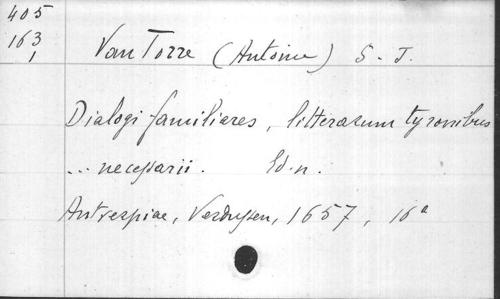 405
163
1
Van Torre (Antoine) S. J.
Dialogi familiares, litterarum tyronibus
... necessarii. Ed. n.
Antverpiae, Verdussen, 1657, 16ª